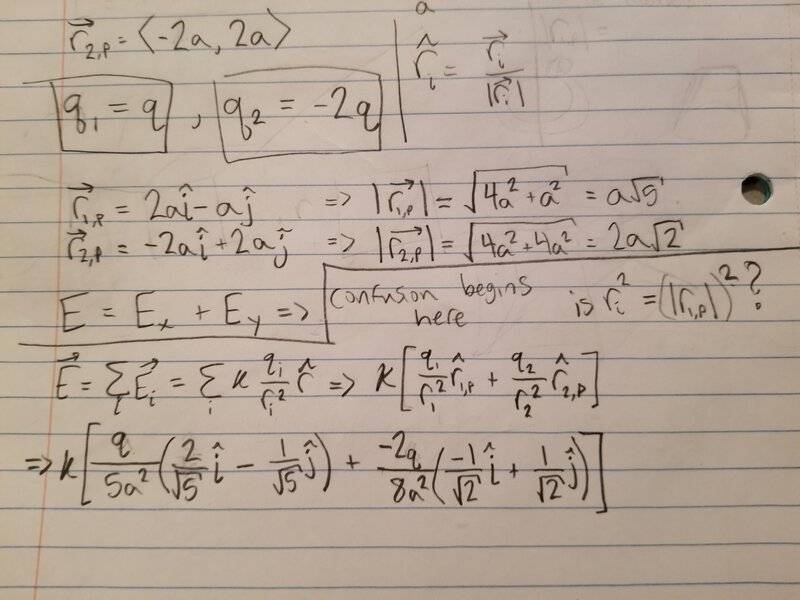 a
r⃗₂,ₚ = ⟨-2a, 2a⟩
r̂ᵢ = r⃗ᵢ / |r⃗ᵢ|
q₁ = q , q₂ = -2q
r⃗₁,ₚ = 2aî - aĵ => |r⃗₁,ₚ| = √(4a² + a²) = a√5
r⃗₂,ₚ = -2aî + 2aĵ => |r⃗₂,ₚ| = √(4a² + 4a²) = 2a√2
E = Eₓ + E_y => confusion begins here is rᵢ² = (|r₁,ₚ|)² ?
E⃗ = Σᵢ E⃗ᵢ = Σᵢ k qᵢ/rᵢ² r̂ => k[q₁/r₁² r̂₁,ₚ + q₂/r₂² r̂₂,ₚ]
=> k[q/5a² (2/√5 î - 1/√5 ĵ) + -2q/8a² (-1/√2 î + 1/√2 ĵ)]